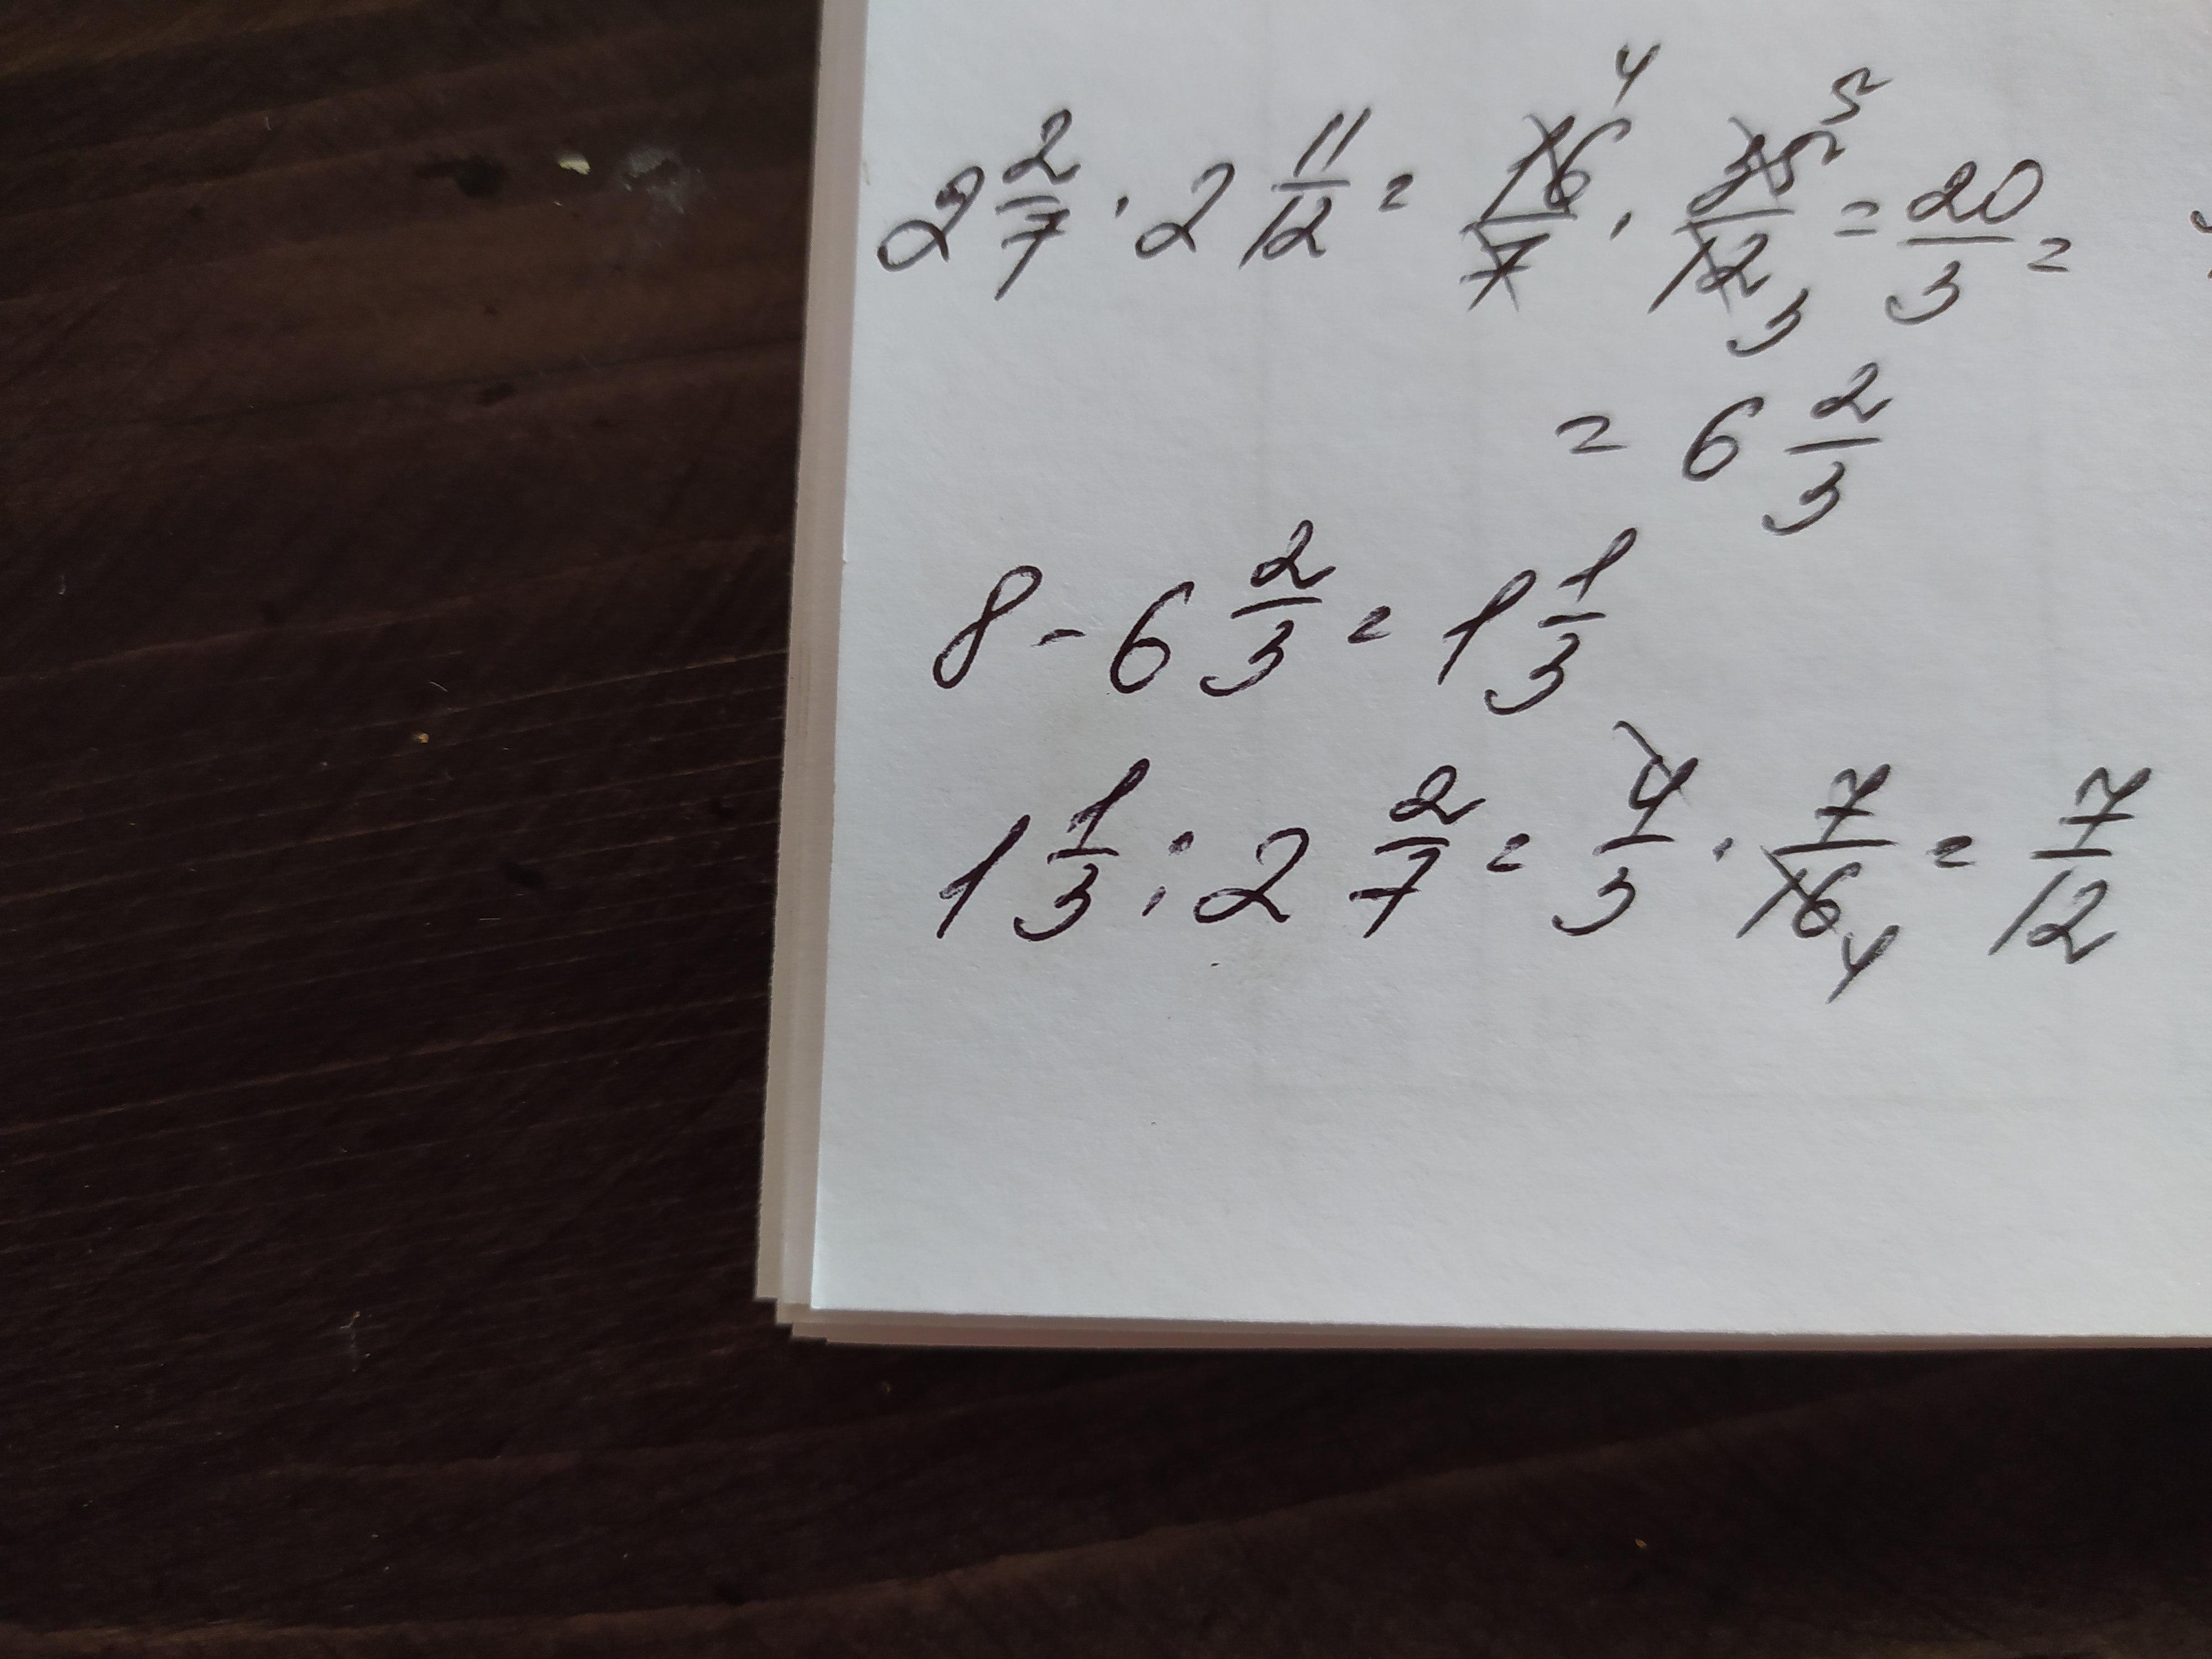 2 2/7 · 2 11/12 = 16 4/7 · 35 5/12 3 = 20/3 =
= 6 2/3
8 - 6 2/3 = 1 1/3
1 1/3 : 2 2/7 = 4/3 · 7/16 4 = 7/12